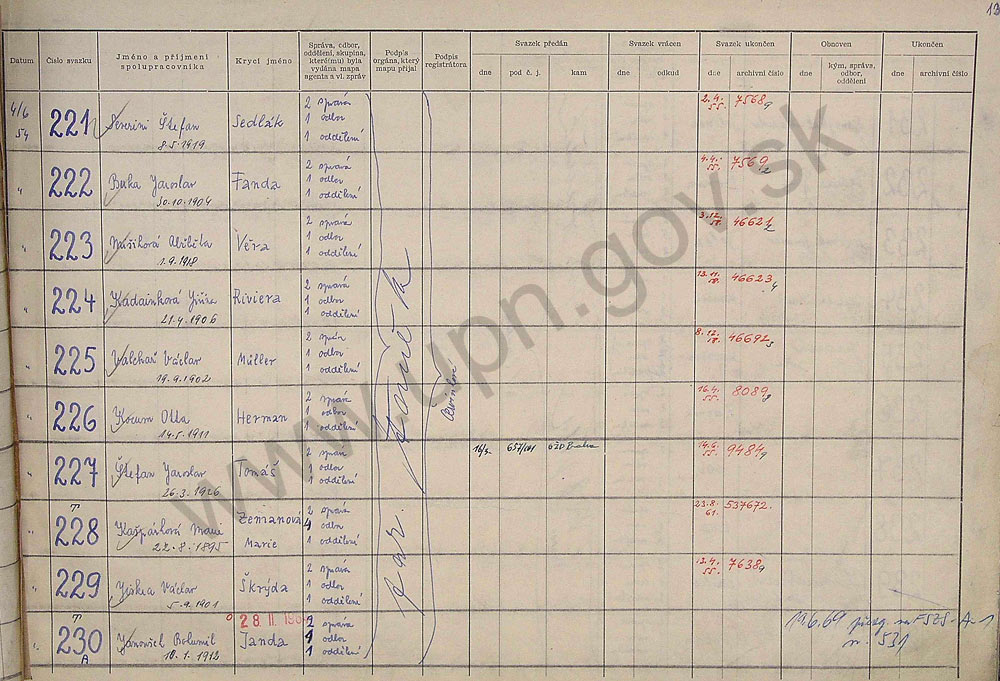 13
Datum
Číslo svazku
Jméno a příjmení
spolupracovníka
Krycí jméno
Správa, odbor,
oddělení, skupina,
které(mu) byla
vydána mapa
agenta a vl. zpráv
Podpis
orgána, který
mapu přijal
Podpis
registrátora
Svazek předán
dne
pod č. j.
kam
Svazek vrácen
dne
odkud
Svazek ukončen
dne
archivní číslo
Obnoven
dne
kým, správa,
odbor,
oddělení
Ukončen
dne
archivní číslo
4/6
54
221
Severini Štefan
8.5.1919
Sedlák
2 správa
1 odbor
1 oddělení
2.4.
55.
7568
222
Buka Jaroslav
30.10.1904
Fanda
2 správa
1 odbor
1 oddělení
4.4.
55.
7569
223
1.9.1918
Věra
2 správa
1 odbor
1 oddělení
3.12.
46621
224
21.4.1906
Riviera
2 správa
1 odbor
1 oddělení
46623
225
Václav
19.9.1902
Müller
2 správa
1 odbor
1 oddělení
8.12.
46692
226
Kocum Otta
14.5.1911
Herman
2 správa
1 odbor
1 oddělení
16.4.
55.
8089
227
Štefan Jaroslav
26.3.1926
Tomáš
2 správa
1 odbor
1 oddělení
14.6.
55.
9484
T
228
Kašpárková Marie
22.8.1895
Zemanová
Marie
2 správa
4 odbor
1 oddělení
23.8.
61.
537672.
229
Václav
5.9.1901
Škrýda
2 správa
1 odbor
1 oddělení
12.4.
55.
7638
T
230
A
Bohumil
10.1.1912
28 II.
Janda
2 správa
odbor
1 oddělení
19.6.69
531
www.upn.gov.sk